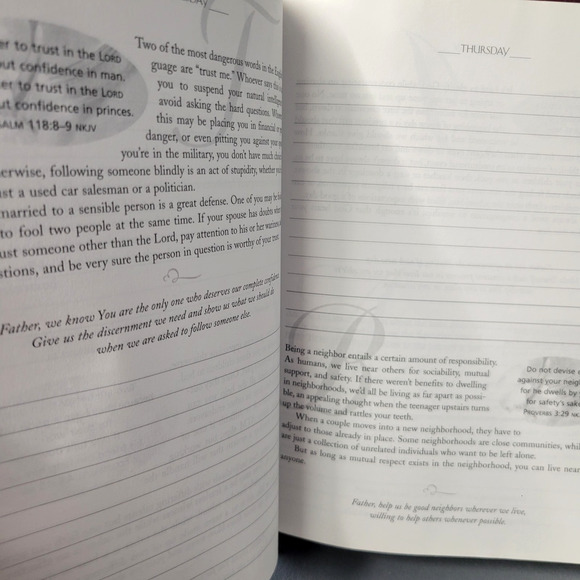 DAY
er to trust in the LORD
ut confidence in man.
er to trust in the LORD
ut confidence in princes.
SALM 118:8–9 NKJV
Two of the most dangerous words in the Engl
guage are “trust me.” Whoever says this
you to suspend your natural intellige
avoid asking the hard questions.
this may be placing you in financial or
danger, or even pitting you against your
you’re in the military, you don’t have much choi
erwise, following someone blindly is an act of stupidity, whether you
ust a used car salesman or a politician.
married to a sensible person is a great defense. One of you may be
to fool two people at the same time. If your spouse has doubts
ust someone other than the Lord, pay attention to his or her
stions, and be very sure the person in question is worthy of your trust.
Father, we know You are the only one who deserves our complete confidence.
Give us the discernment we need and show us what we should do
when we are asked to follow someone else.
THURSDAY
Being a neighbor entails a certain amount of responsibility.
As humans, we live near others for sociability, mutual
support, and safety. If there weren’t benefits to dwelling
in neighborhoods, we’d all be living as far apart as possi-
ble, an appealing thought when the teenager upstairs turns
up the volume and rattles your teeth.
When a couple moves into a new neighborhood, they have to
adjust to those already in place. Some neighborhoods are close communities, whil
are just a collection of unrelated individuals who want to be left alone.
But as long as mutual respect exists in the neighborhood, you can live near
anyone.
Do not devise
against your neig
for he dwells by
for safety’s sake
PROVERBS 3:29 NK
Father, help us be good neighbors wherever we live,
willing to help others whenever possible.